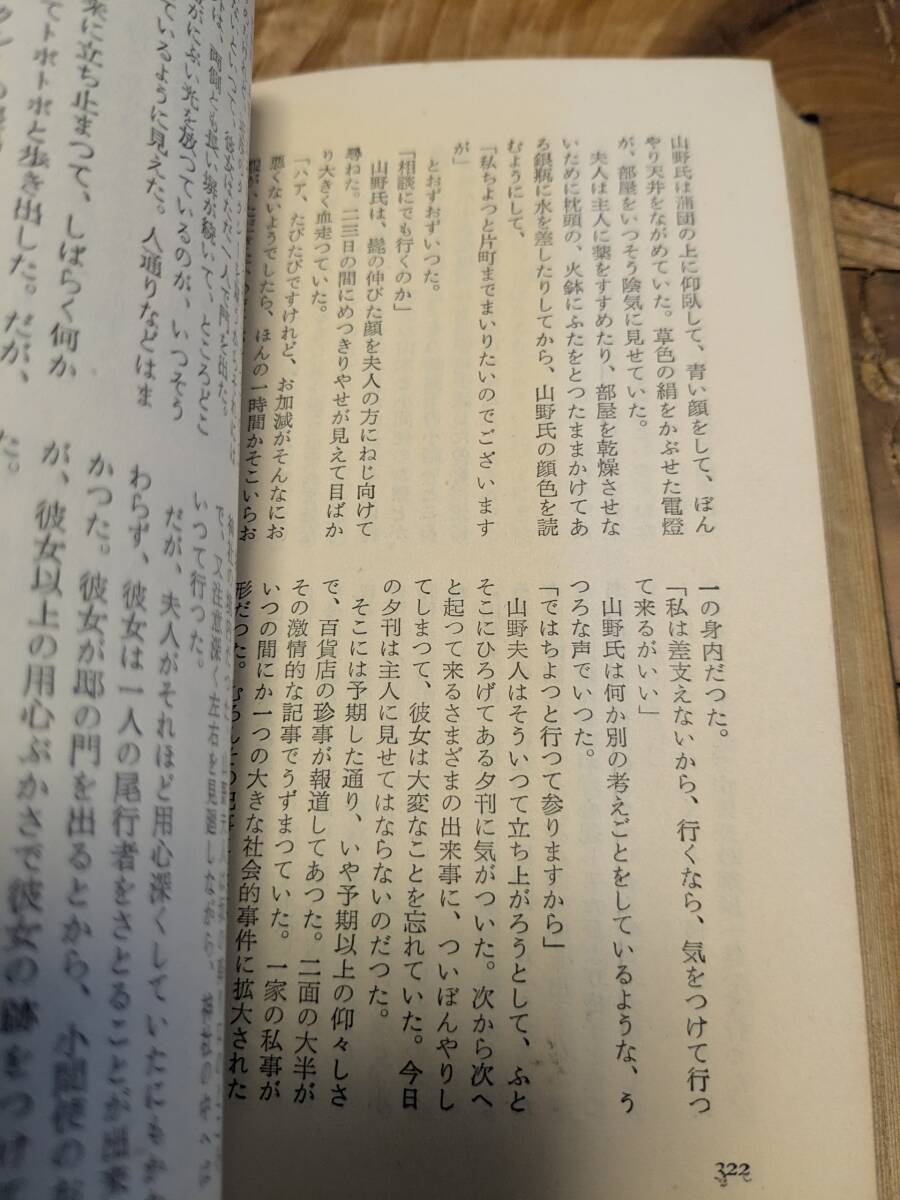 山野氏は蒲団の上に仰臥して、青い顔をして、ぼん
やり天井をながめていた。草色の絹をかぶせた電燈
が、部屋をいつそう陰気に見せていた。
夫人は主人に薬をすすめたり、部屋を乾燥させな
いために枕頭の、火鉢にふたをとつたままかけてあ
る銀瓶に水を差したりしてから、山野氏の顔色を読
むようにして、
「私ちよつと片町までまいりたいのでございます
が」
とおずおずいつた。
「相談にでも行くのか」
山野氏は、髭の伸びた顔を夫人の方にねじ向けて
尋ねた。二三日の間にめつきりやせが見えて目ばか
り大きく血走つていた。
「ハア、たびたびですけれど、お加減がそんなにお
悪くないようでしたら、ほんの一時間かそこいらお
一の身内だつた。
「私は差支えないから、行くなら、気をつけて行つ
て来るがいい」
山野氏は何か別の考えごとをしているような、う
つろな声でいつた。
「ではちよつと行つて参りますから」
山野夫人はそういつて立ち上がろうとして、ふと
そこにひろげてある夕刊に気がついた。次から次へ
と起つて来るさまざまの出来事に、ついぼんやりし
てしまつて、彼女は大変なことを忘れていた。今日
の夕刊は主人に見せてはならないのだつた。
そこには予期した通り、いや予期以上の仰々しさ
で、百貨店の珍事が報道してあつた。二面の大半が
その激情的な記事でうずまつていた。一家の私事が
いつの間にか一つの大きな社会的事件に拡大された
形だつた。
322
ころどこ
がにぶい光を放つているのが、いつそう
ているように見えた。人通りなどはま
来に立ち止まつて、しばらく何か
でトボトボと歩き出した。だが、
で、又注意深く左右を見廻しながら、
いつて行つた。
だが、夫人がそれほど用心深くしていたにもかか
わらず、彼女は一人の尾行者をさとることが出来
かつた。彼女が邸の門を出るとから、小間使のお
が、彼女以上の用心ぶかさで彼女の跡をつけて
た。